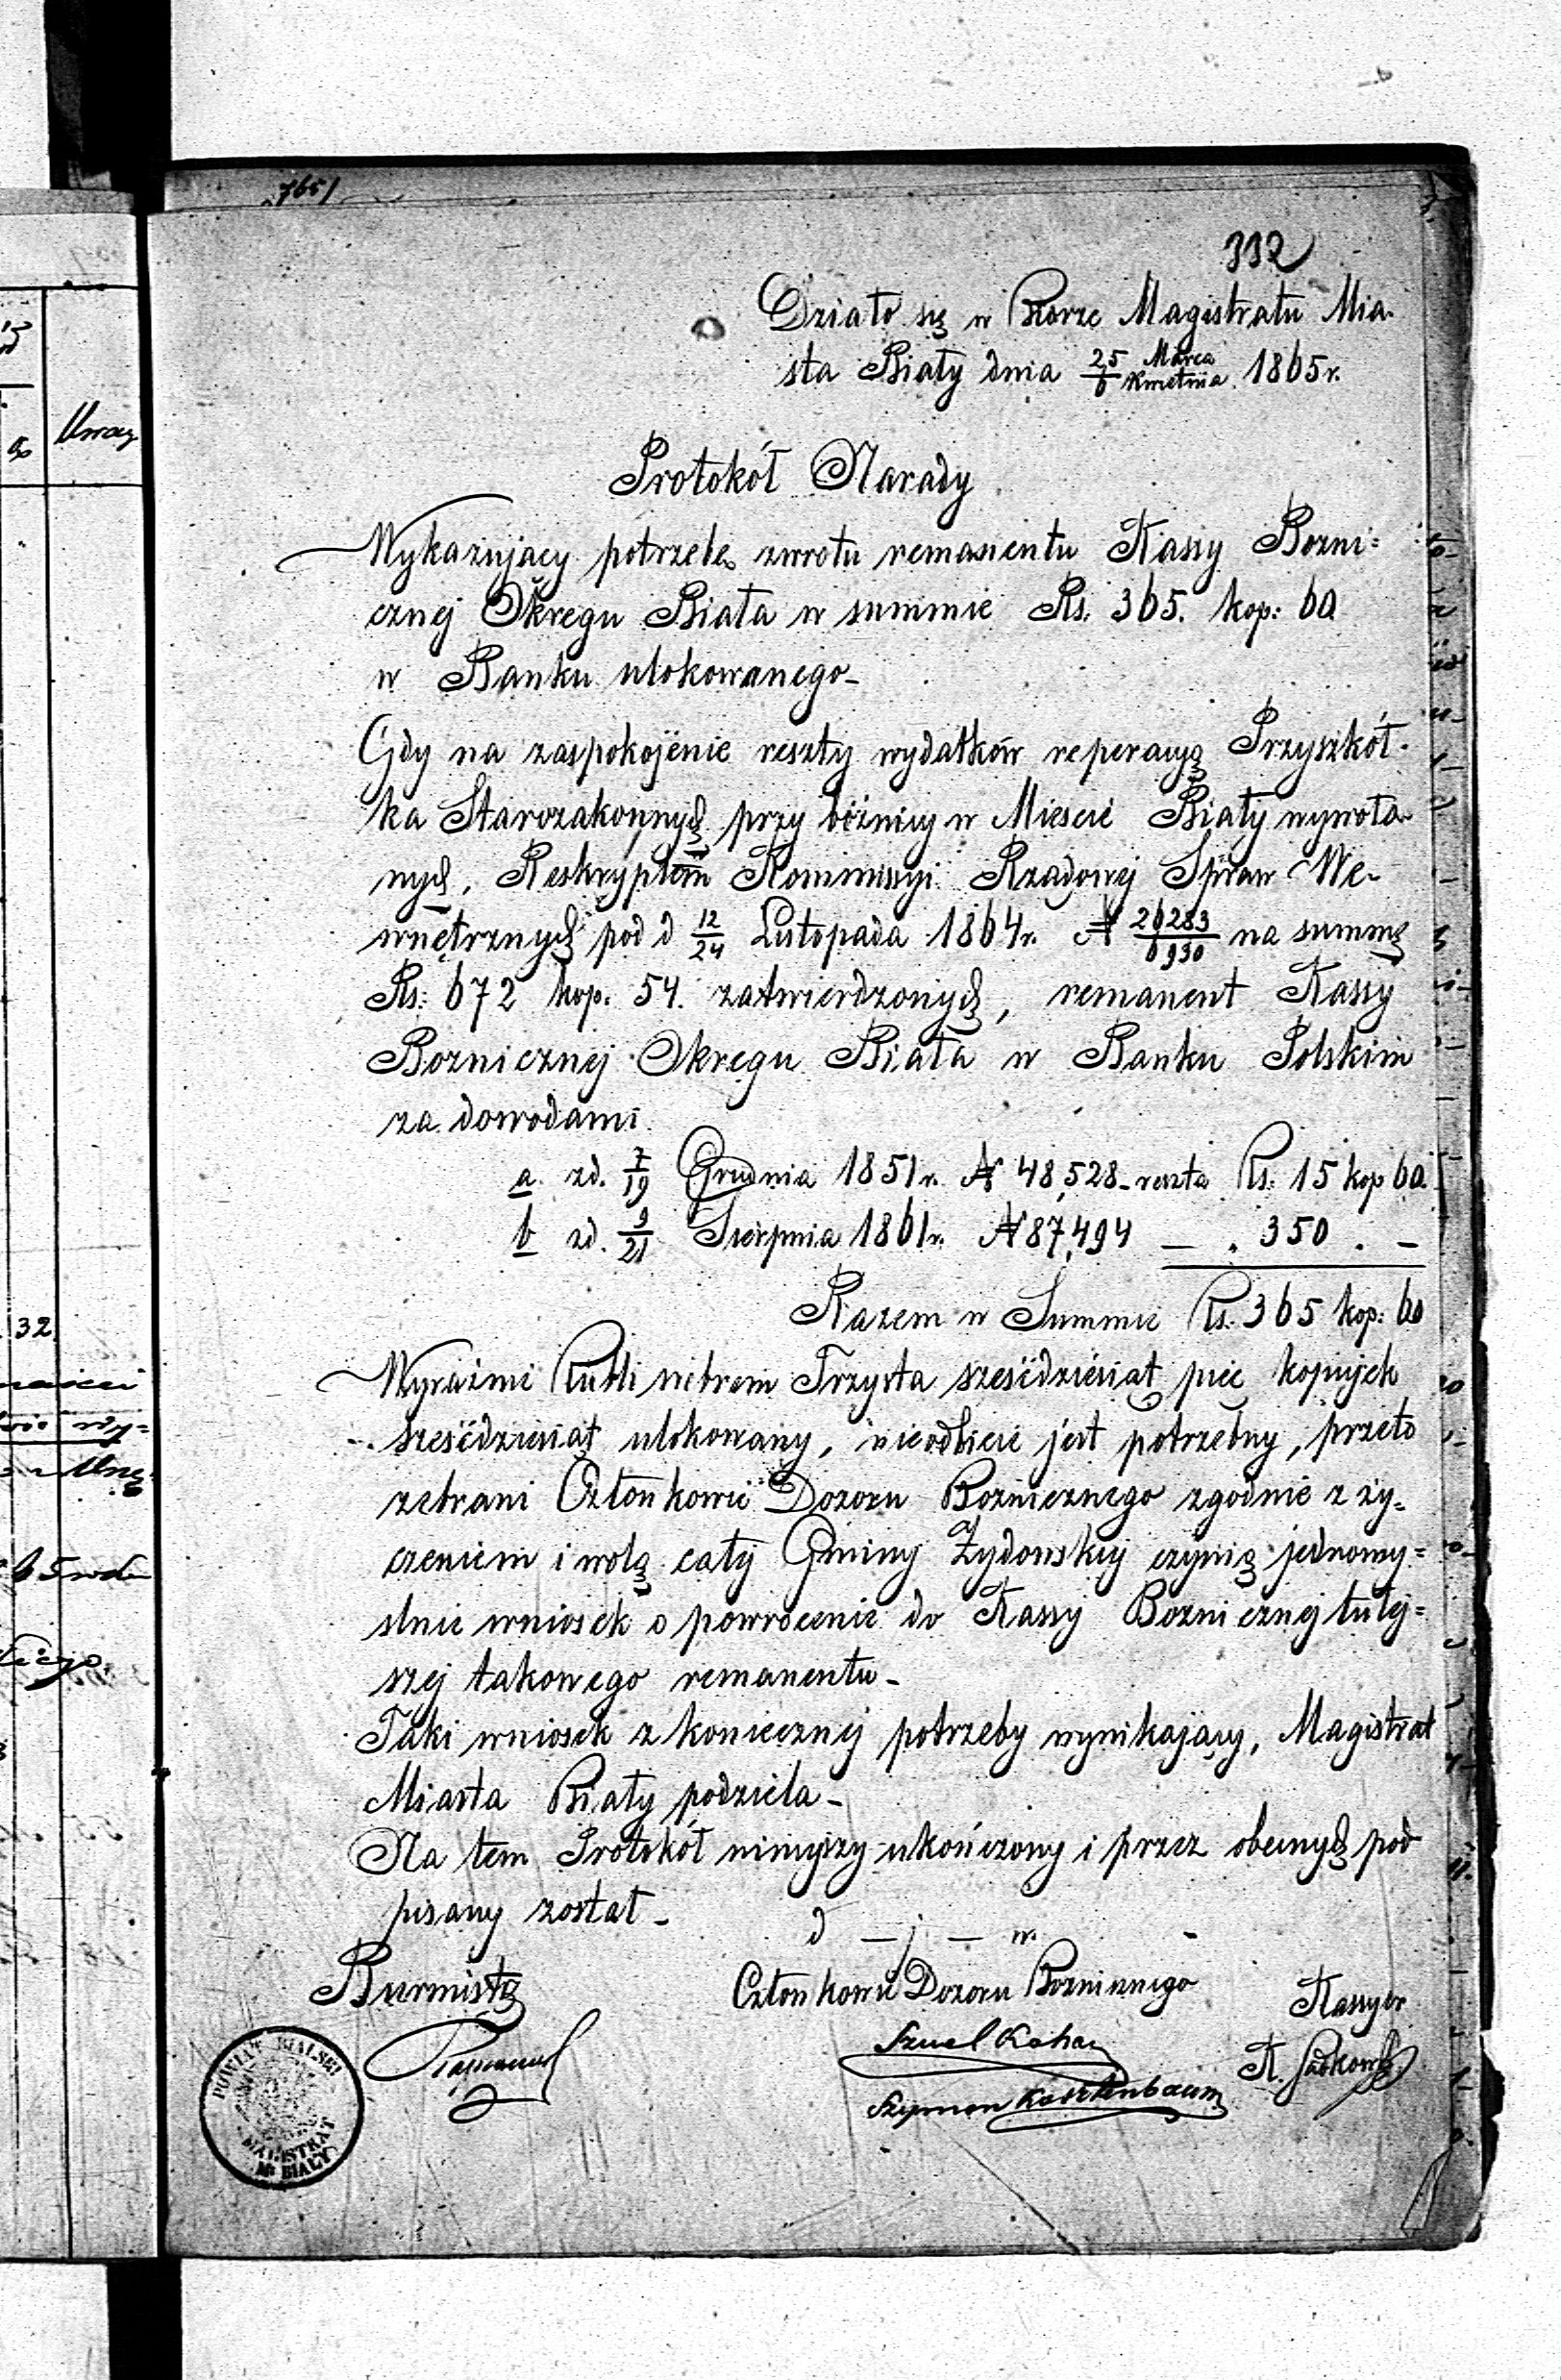 332
Działo się w Biorze Magistratu Mia-
sta Biały dnia 25/6 Marca/Kwietnia 1865 r.
Protokół Narady
Wykazujący potrzebę zwrotu remanentu Kassy Bozni=
cznej Okręgu Biała w summie Rs. 365. kop: 60
w Banku ulokowanego -
Gdy na zaspokojenie reszty wydatków reperacyą Przyszkół-
ka Starozakonnych przy bóżnicy w Miescie Biały wywoła-
nych, Reskryptem Kommissyi Rządowej Spraw We-
wnętrznych pod d 12/24 Listopada 1864 r. N 26283/6930 na summę
Rs: 672 kop. 54. zatwierdzonych, remanent Kassy
Boznicznej Okręgu Biała w Banku Polskim
za dowodami
a. zd. 7/19 Grudnia 1851 r. N 48,528 - reszta Rs: 15 kop 60.
b zd. 9/21 Sierpnia 1861 r. N 87,494 — . 350 . -
Razem w Summie Rs. 365 kop: 60
Wyraźnie Rubli srebrem Trzysta sześćdziesiąt pięć kopiejek
sześćdziesiąt ulokowany, nieodbicie jest potrzebny, przeto
zebrani Członkowie Dozoru Boznicznego zgodnie z ży-
czeniem i wolą całej Gminy Żydowskiej czynią jednomy=
slnie wniosek o powrócenie do Kassy Boznicznej tutej=
szej takowego remanentu -
Taki wniosek z koniecznej potrzeby wynikający, Magistrat
Miasta Biały podziela -
Na tem Protokół niniejszy ukończony i przez obecnych pod
pisany został -
d — j — w.
Burmistrz
Członkowie Dozoru Boznicznego
Kassyer
Szmul Kahan
Szymon Kasztenbaum
POWIAT BIALSKI
MAGISTRAT
M. BIAŁY